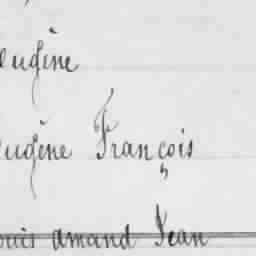 eugène
eugène François
ouis amand Jean